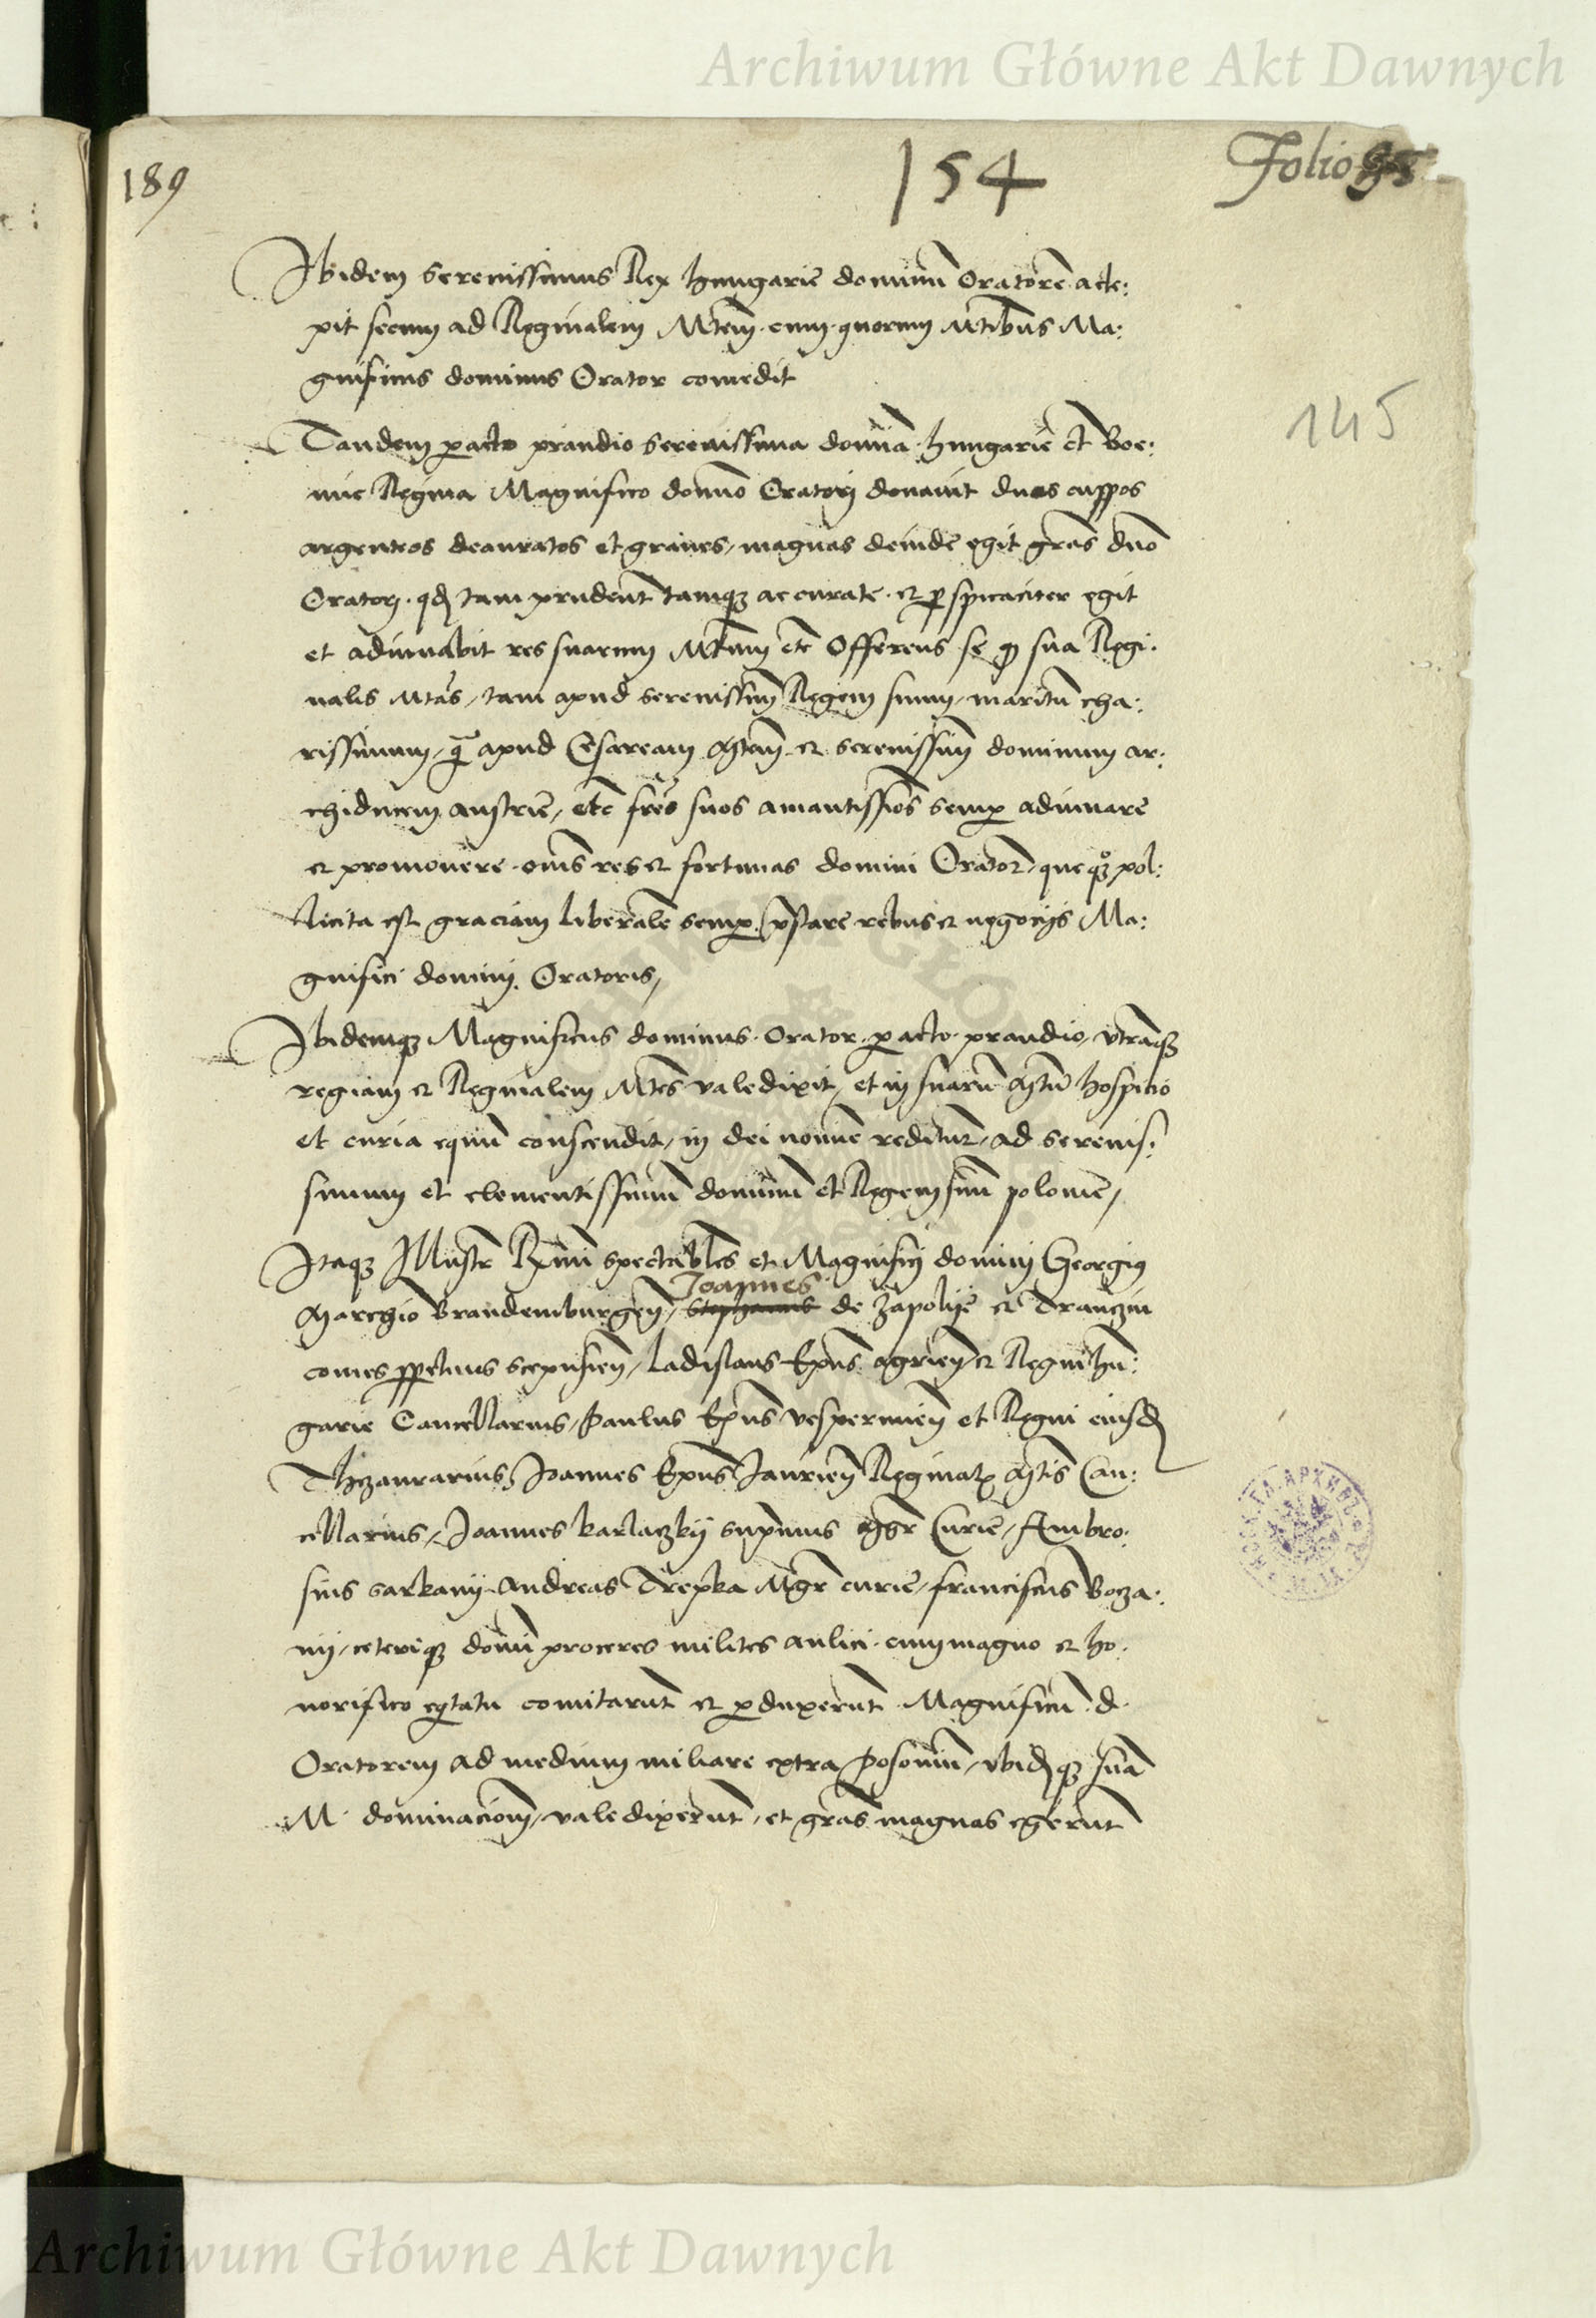 Archiwum Główne Akt Dawnych
189
154
Folio
Ibidem Serenissimus Rex hungarie dominũ Oratorẽ acce:
pit secum ad Reginalem Mtem cum quorum Mtibus Ma:
gnificus dominus Orator comedit
145
Tandem peracto prandio Serenissima domina hungarie et Boe:
mie Regina Magnifico domno Oratorj donauit duos cuppos
argenteos deauratos et graues, magnas deinde egit grãs dno
Oratorj. qđ tam prudent tamqȝ accurate et perspicaciter egit
et adiuuabit res suarum Mtum etc Offerens se qđ sua Regi:
nalis Mtas, tam apud Serenissim Regem suum, maritũ cha:
rissimum, q̃ apud Cesaream Mtem et Serenissim dominum ar:
chiducem austrie, etc frẽs suos amantissiõs semp adiuuare
et promouere. oms res et fortunas domini Orator, que qȝ pol:
licita est graciam liberalẽ semp pstare rebus et negocijs Ma:
gnifici dominj Oratoris,
Ibidemqȝ Magnificus dominus Orator peracto prandio, vtramqȝ
regiam et Reginalem Mtes valedixit, et in suarũ Mtũ hospicio
et curia equũ conscendit, in dei nomine reditur, ad Serenis:
simum et clementissimũ dominũ et Regem suũ polonie,
Itaqȝ Illustr Rmi spectables et Magnificj dominj Georgius
Marchio Brandemburgeñ, Stephanus Joannes de Zapolye et Tranczin
comes ppetuus scepusieñ, Ladislaus Epus agrieñ et Regni hũ:
garie Cancellarius, Paulus Epus vesperimieñ et Regni eiusđ
Thezaurarius, Joannes Epus Jaurieñ Reginalȩ Mtis Can:
cellarius, Joannes karlaczkij supmus Mgr Curie, Ambro:
sius sarkanij Andreas Trepka Mgr curie, franciscus Bocza:
nij, ceteriqȝ domi proceres milites aulici cum magno et ho:
norifico eqtatu comitarũt et perduxerũt Magnificũ d.
Oratorem ad medium miliare extra Posoniũ, vbiđqȝ suã
M. dominacioem, valedixerũt, et grãs magnas egerũt
Archiwum Główne Akt Dawnych